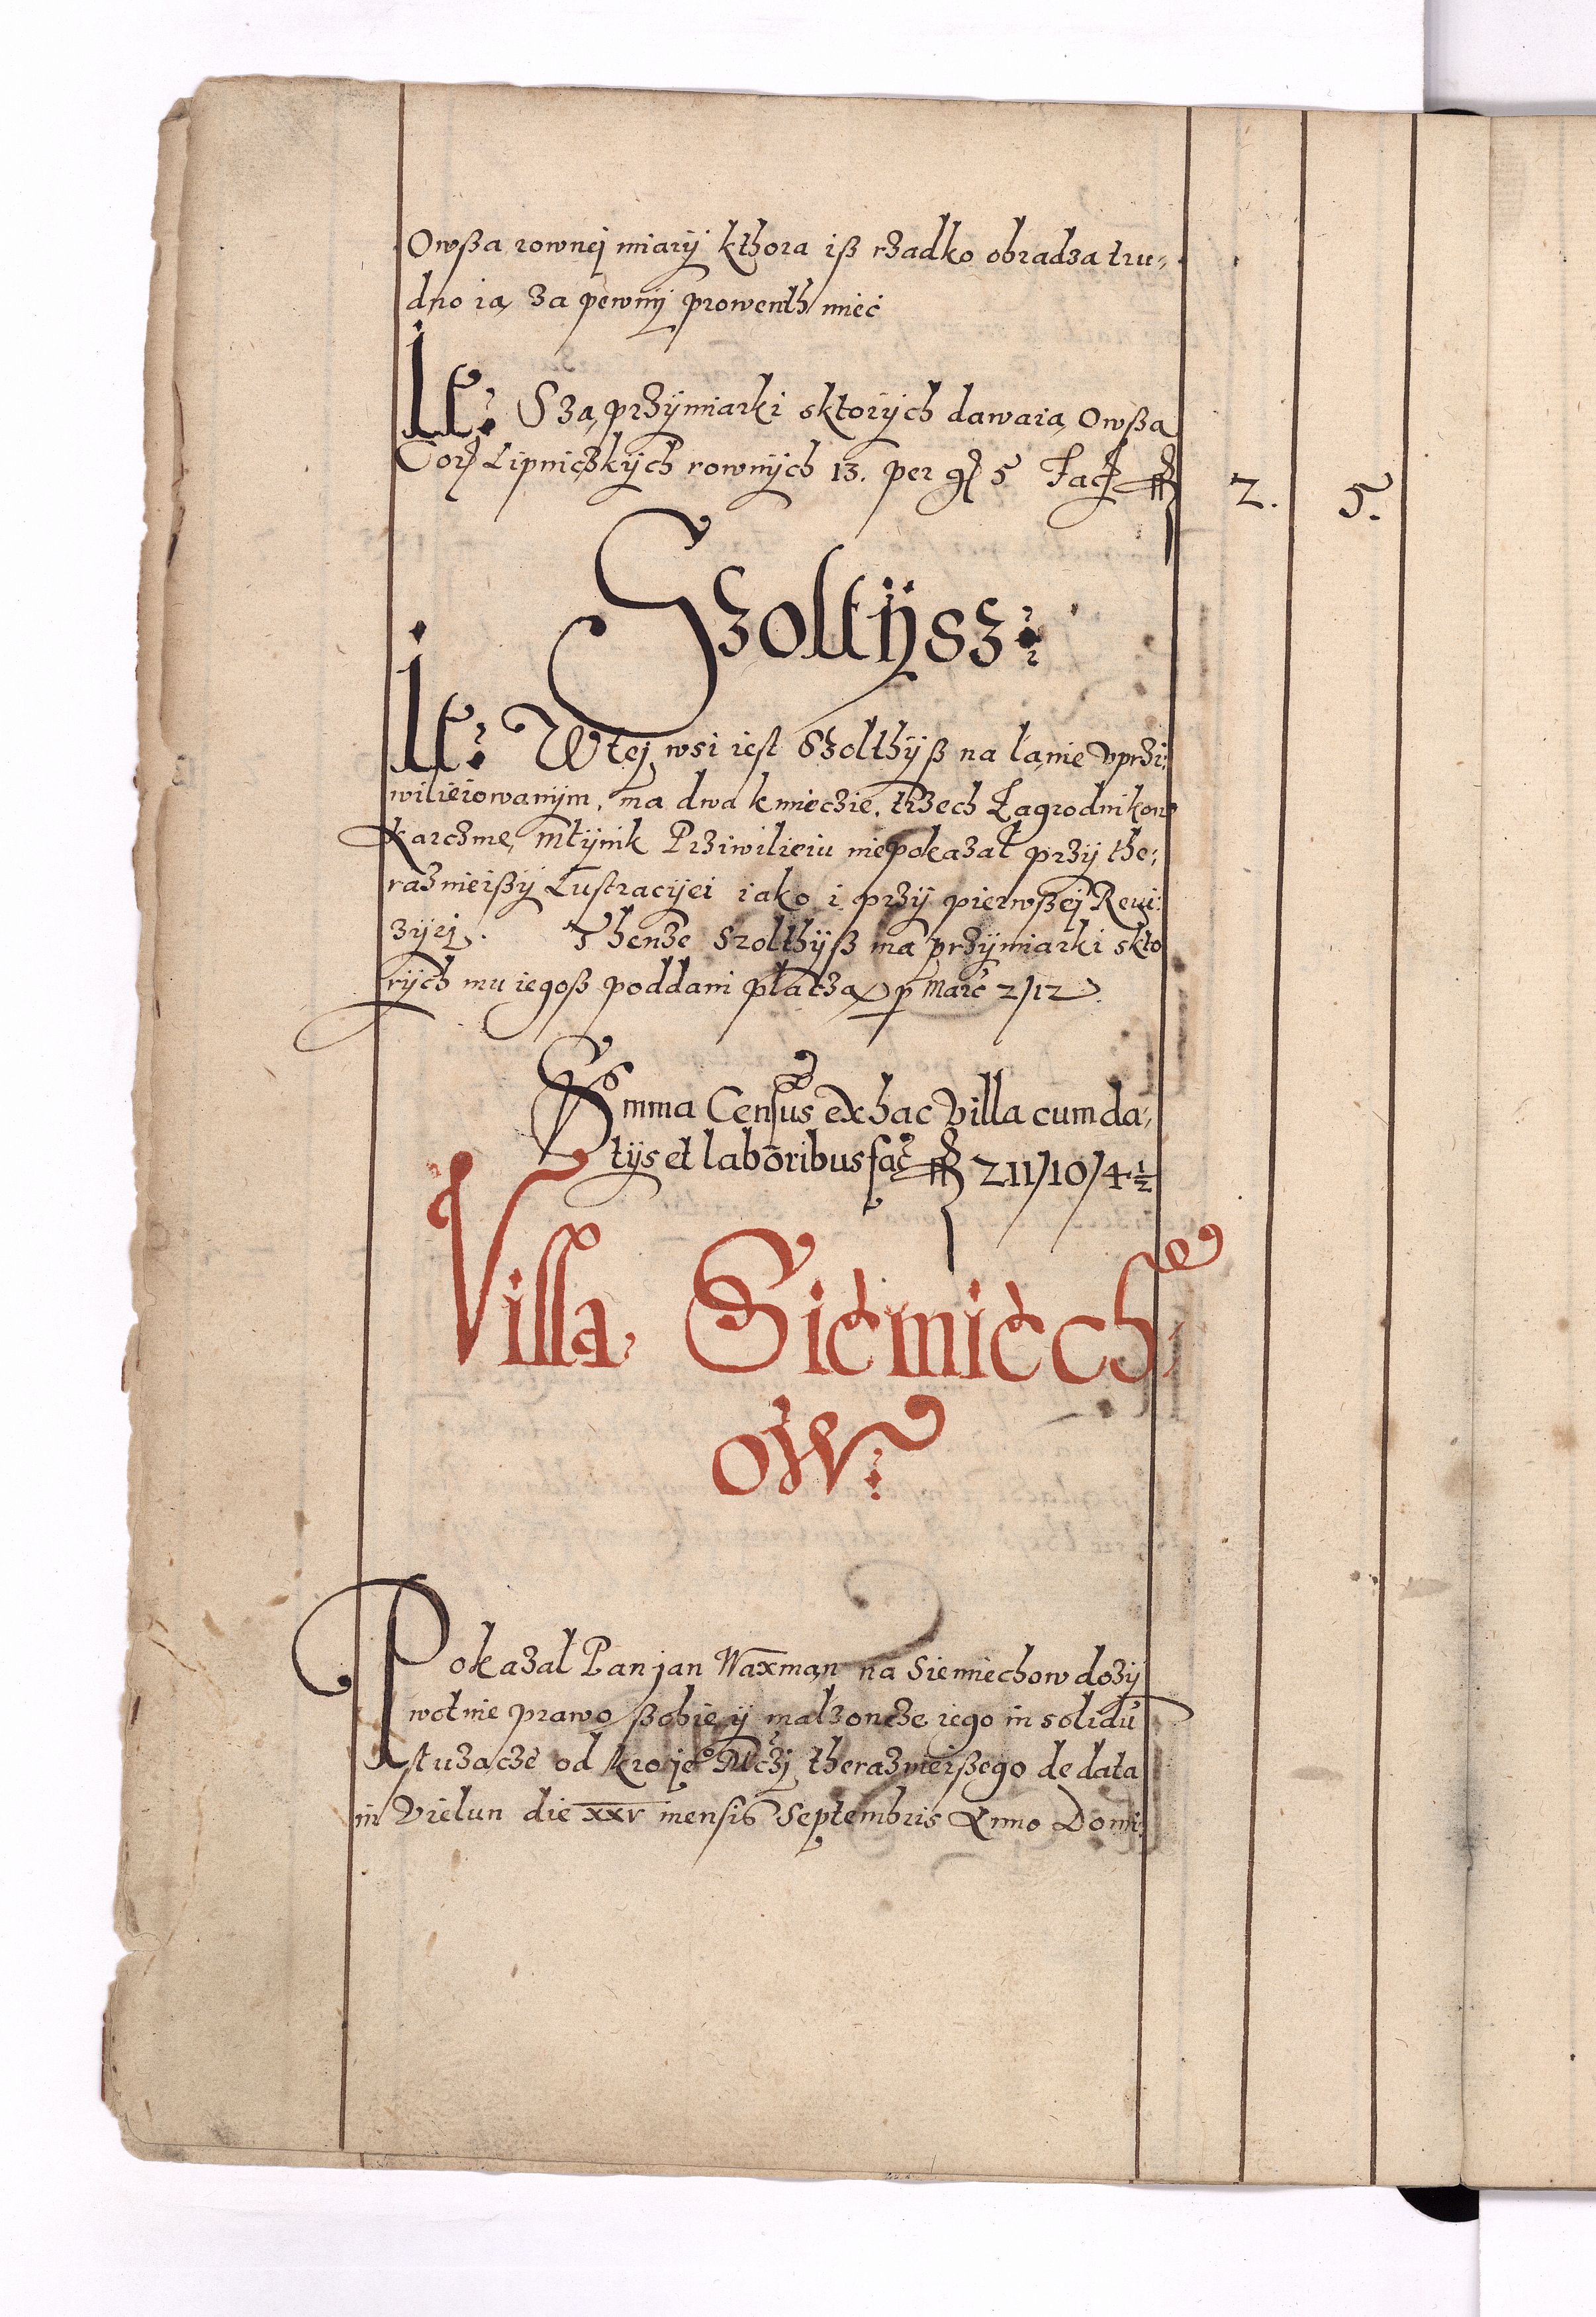 Owßa rownej miarÿ kthora iß rzadko obradza tru-
dno ią za pewnÿ prowenth mieć
It: Szą przÿmiarki sktorÿch dawaią Owßa
Cor Lipniczkÿch rownÿch 13. per g 5 Facit 2. 5.
Szoltÿsz
It: W tej wsi iest Szolthÿß na łanie vprzi:
wilieiowanÿm, ma dwa kmieczie, trzech Zagrodnikow
Karczmę, Młÿnik Prziwilieiu niepokazał przÿ the:
raznieißÿ Lustracÿei iako i przÿ pierwßej Rewi:
zÿej. Thenze Szolthÿß ma przÿmiarki skto
rÿch mu iegoß poddani płaczą p Marc 2/12
Summa Census ex hac Villa cum da:
tÿs et laboribus fac 211/10/4½
Villa Siemiech
ow
Pokazal Pan jan Waxman na Siemiechow dozÿ
wotnie prawo ßobie ÿ malzoncze iego in solidū
służącze od Kro je° Mczj theraznieißego de data
in Vielun die xxv mensis Septembris Anno Domi: